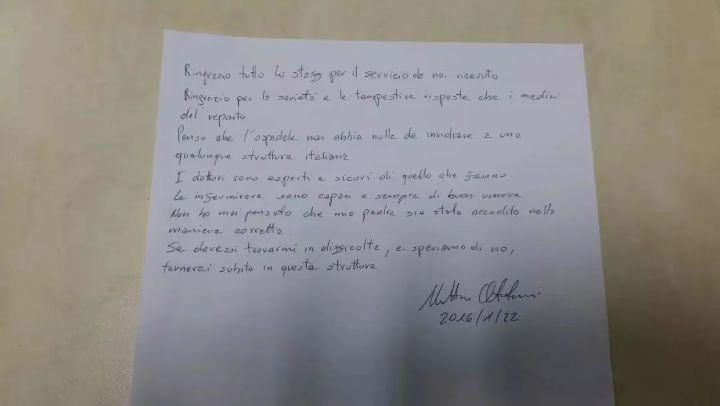 Ringrazio tutto lo staff per il servizio da noi ricevuto
Ringrazio per la serietà e le tempestive risposte che i medici
del reparto
Penso che l'ospedale non abbia nulla da invidiare a una
qualunque struttura italiana
I dottori sono esperti e sicuri di quello che fanno
Le infermiere sono capaci e sempre di buon umore
Non ho mai pensato che mio padre sia stato accudito nella
maniera corretta
Se dovessi trovarmi in difficoltà, e speriamo di no,
tornerei subito in questa struttura
2016/1/22